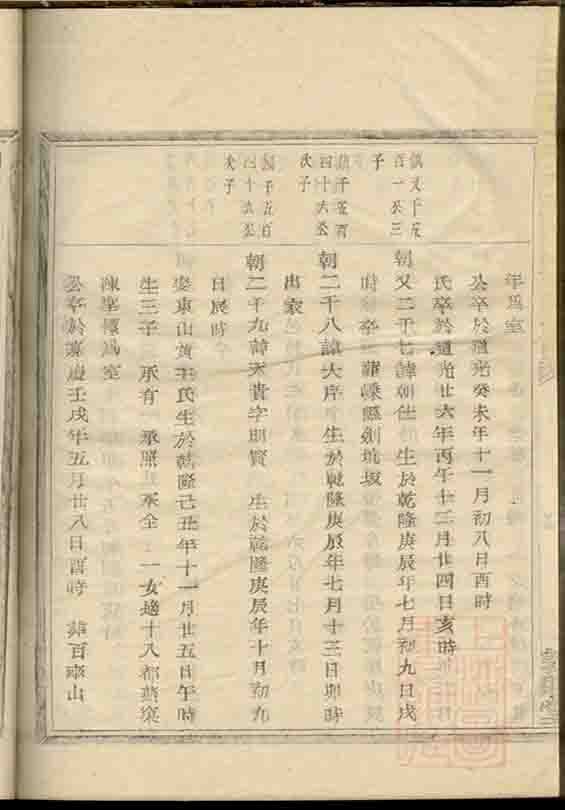 年為室
公卒於道光癸未年十一月初八日酉時
氏卒於道光廿六年丙午十二月廿四日亥時
百一公三
子
朝又二千七諱朝仕 生於乾隆庚辰年七月初九日戌
時 卒 羅嵊縣劍坑坂
四十六公
次子
朝二千八諱大序 生於乾隆庚辰年七月十三日卯時
出家
四十六公
次子
朝二千九諱天貴字明賢 生於乾隆庚辰年十月初九
日辰時
娶東山黄 氏生於乾隆己丑年十一月廿五日午時
生三子 承有 承照 承全 一女適十八都葉
陳 為室
公卒於嘉慶壬戌年五月廿八日酉時 葬百 山